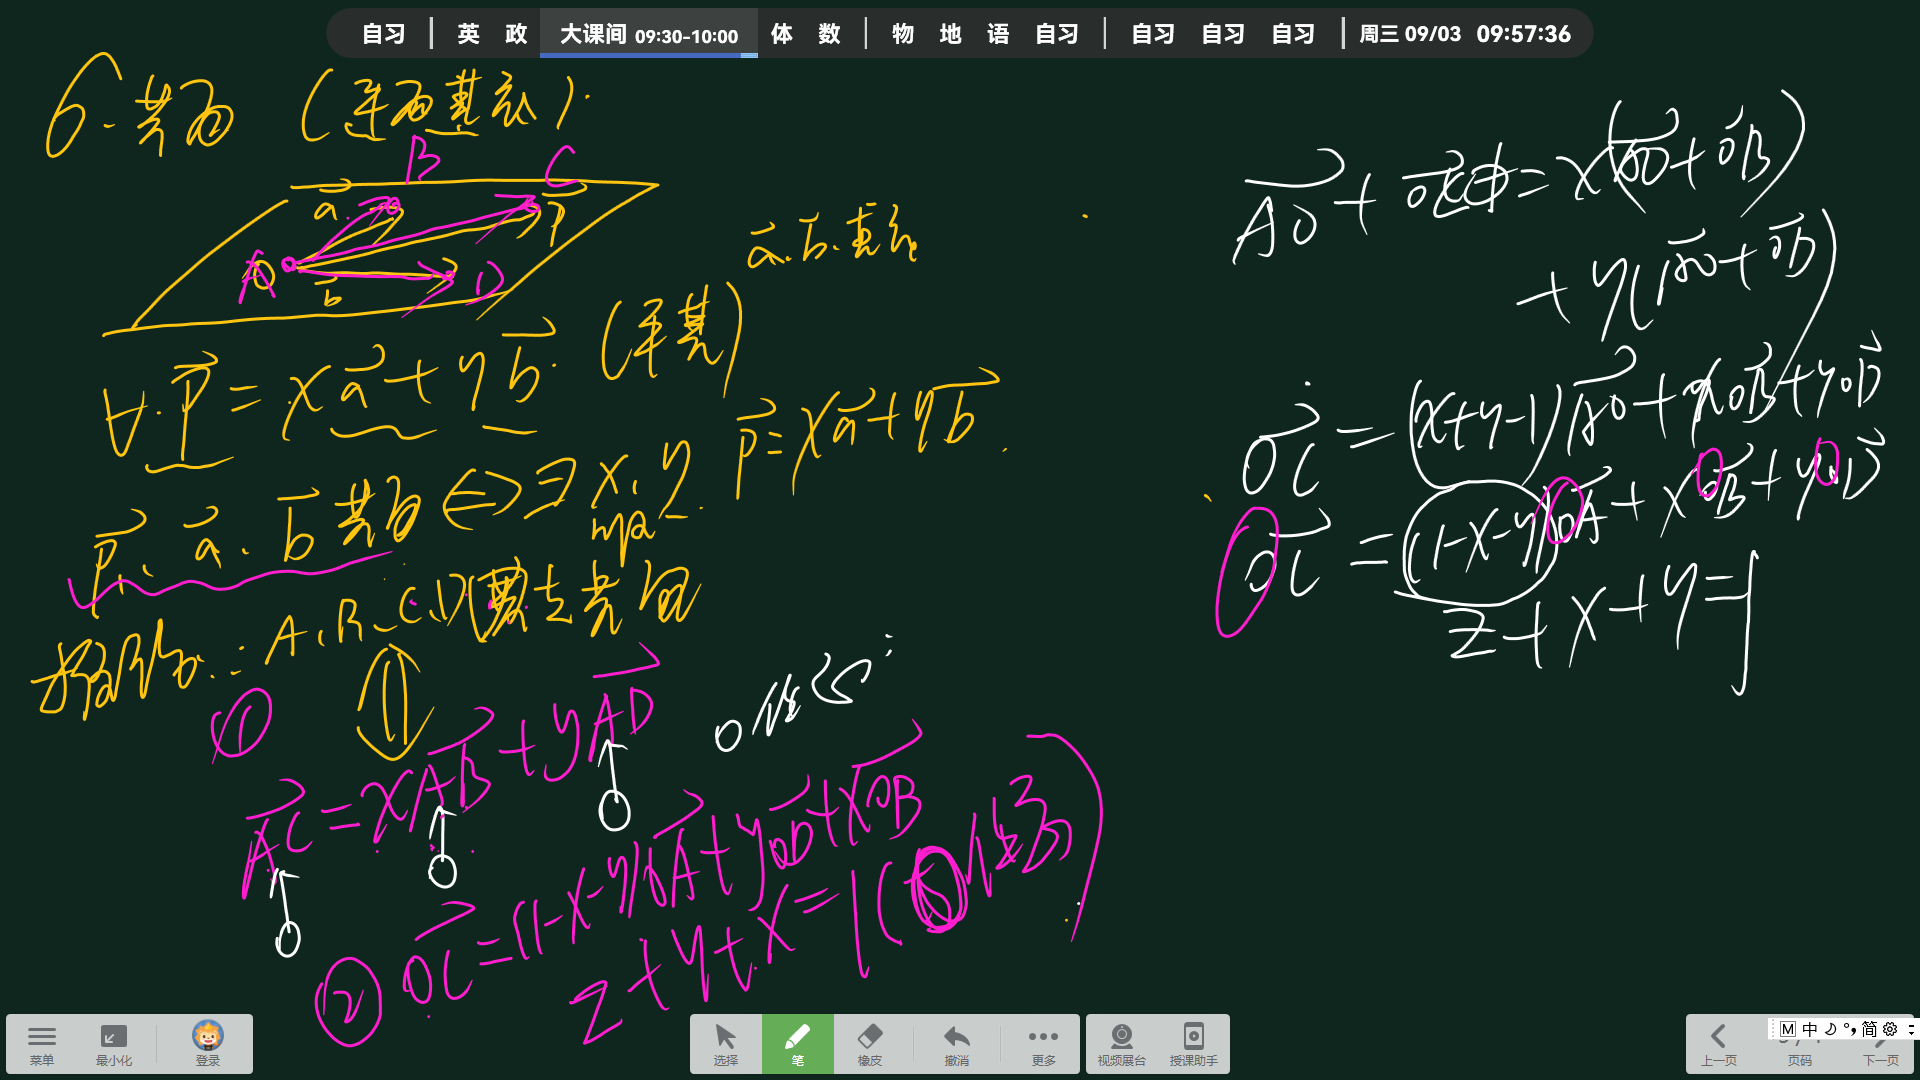 自习 | 英 政 大课间 09:30-10:00 体 数 | 物 地 语 自习 | 自习 自习 自习 | 周三 09/03 09:57:36
6.共面 (平面基底)
B C
a P
A O D
b
a.b.基底
∀.P=xa+yb. (平基)
P=xa+yb.
P、a、b共面⟺∃x,y
A、B、C、D四点共面
①
AC=xAB+yAD
O O O
O任意:
②OC=(1-x-y)OA+yOD+xOB
z+y+x=1(O任意)
AO+OC=x(AO+OB)
+y(AO+OD)
OC=(x+y-1)AO+xOB+yOD
OC=(1-x-y)OA+xOB+yOD
z+x+y=1
菜单 最小化 登录
选择 笔 橡皮 撤消 更多
视频展台 授课助手
上一页 页码 下一页
M 中 简